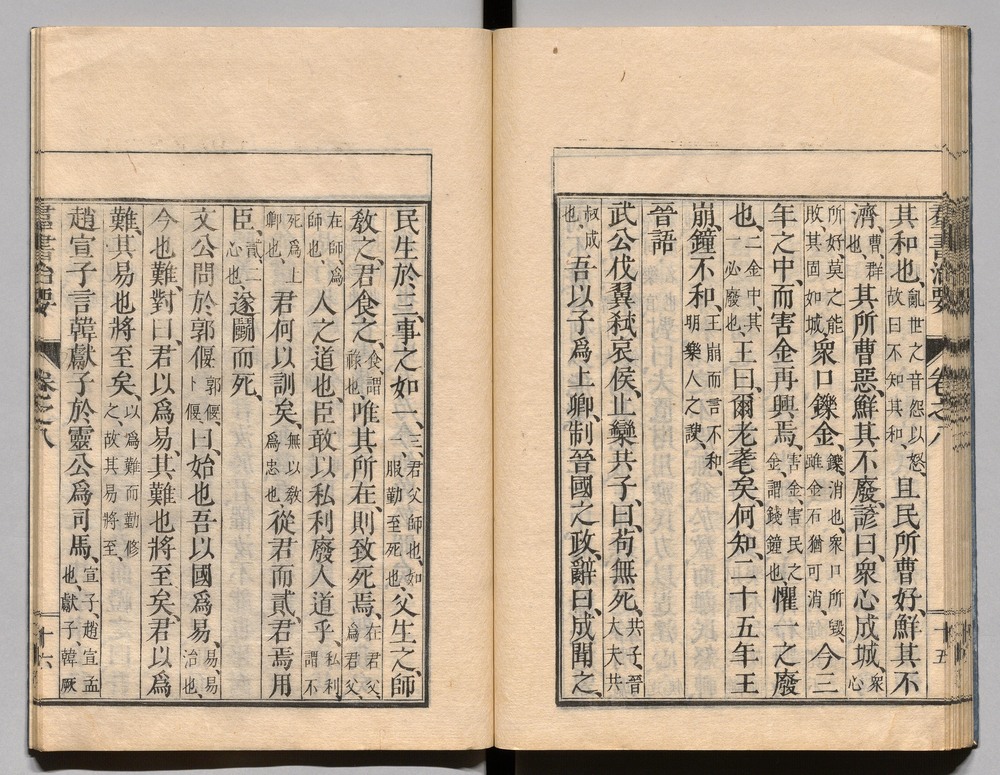 其和也、亂世之音怨以怒、故曰不知其和、且民所曹好、鮮其不
濟、曹、群也、其所曹惡、鮮其不廢、諺曰、衆心成城、衆心
所好、莫之能敗、其固如城、衆口鑠金、鑠、消也、衆口所毀、雖金石猶可消、今三
年之中、而害金再興焉、害金、害民之金、謂錢鐘也、懼一之廢
也、二金中、其一必廢也、王曰、爾老耄矣、何知、二十五年、王
崩、鐘不和、王崩而言不和、明樂人之諛、
晉語
武公伐翼、弒哀侯、止欒共子、曰、苟無死、共子、晉大夫共
叔成也、吾以子爲上卿、制晉國之政、辭曰、成聞之、
民生於三、事之如一、三、君父師也、如一、服勤至死也、父生之、師
敎之、君食之、食、謂祿也、唯其所在、則致死焉、在君父、爲君父、
在師、爲師也、人之道也、臣敢以私利廢人道乎、私利、謂不
死爲上卿也、君何以訓矣、無以敎爲忠也、從君而貳、君焉用
臣、貳、二心也、遂鬪而死、
文公問於郭偃、郭偃、卜偃、曰、始也吾以國爲易、易、易治也、
今也難、對曰、君以爲易、其難也將至矣、君以爲
難、其易也將至矣、以爲難而勤修之、故其易將至、
趙宣子言韓獻子於靈公爲司馬、宣子、趙宣孟也、獻子、韓厥
羣書治要
卷之八
十六
卷之八
十五